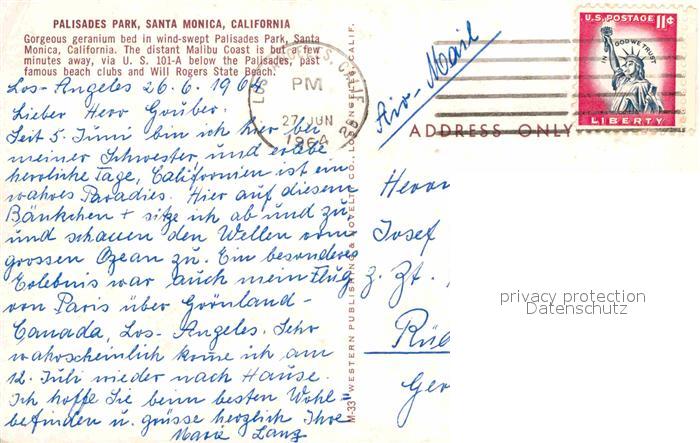 PALISADES PARK, SANTA MONICA, CALIFORNIA
Gorgeous geranium bed in wind-swept Palisades Park, Santa
Monica, California. The distant Malibu Coast is but a few
minutes away, via U. S. 101-A below the Palisades, past
famous beach clubs and Will Rogers State Beach.
Los-Angeles 26.6.1964
Lieber Herr Gruber.
Seit 5. Juni bin ich hier bei
meiner Schwester, und erlebe
herrliche Tage, Californien ist ein
wahres Paradies. Hier auf diesem
Bänkchen + sitze ich ab und zu
und schauen den Wellen vom
grossen Ozean zu. Ein besonderes
Erlebnis war auch mein Flug
von Paris über Grönland-
Canada, Los-Angeles. Sehr
wahrscheinlich komme ich am
12. Juli wieder nach Hause.
Ich hoffe Sie beim besten Wohl-
befinden u. grüsse herzlich Ihre
Marie Lanz
PM
27 JUN
1964
M-33 WESTERN PUBLISHING & NOVELTY CO., LOS ANGELES, CALIF.
Air-Mail
U.S. POSTAGE 11¢
IN GOD WE TRUST
LIBERTY
ADDRESS ONLY
Herrn
Josef
z. Zt.
Rüb
Ger
privacy protection
Datenschutz